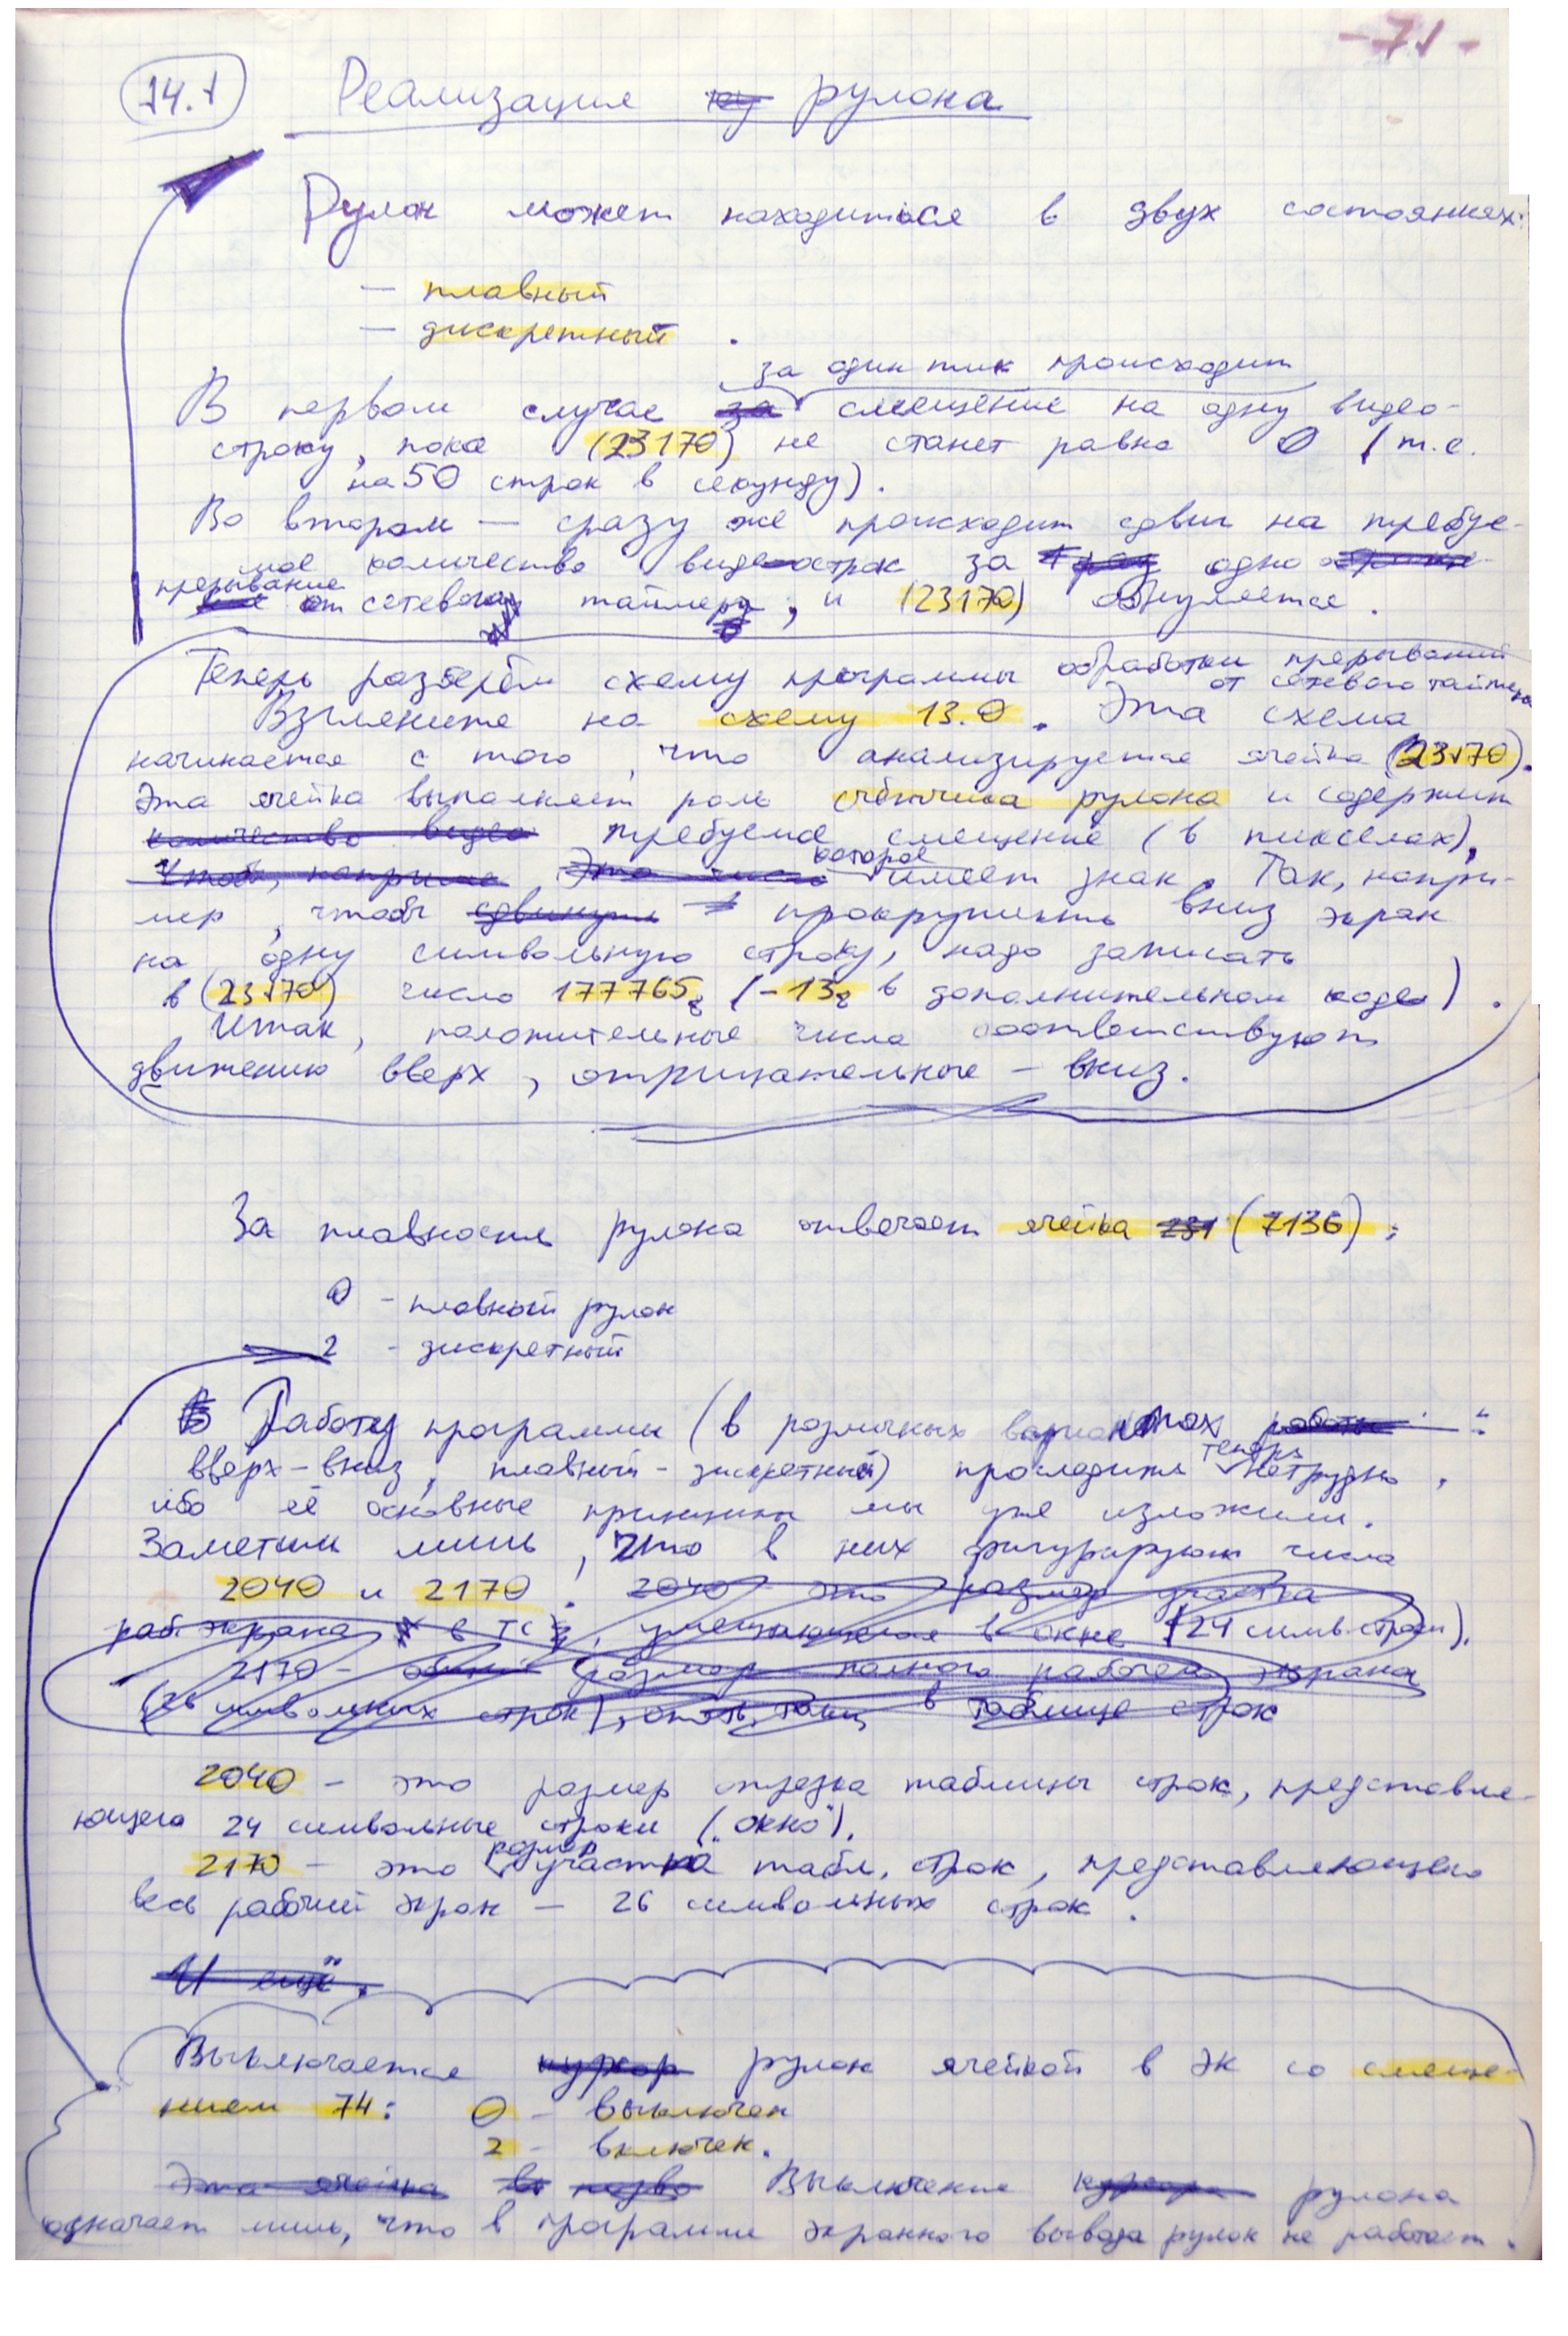 -71-
14.1 Реализация рулона
Рулон может находиться в двух состояниях:
— плавный
— дискретный.
за один тик происходит
В первом случае за смещение на одну видео-
строку, пока (23170) не станет равно 0 (т.е.
на 50 строк в секунду).
Во втором — сразу же происходит сдвиг на требуе-
мое количество видеострок за 1 раз одно
прерывание от сетевого таймера, и (23170) обнуляется.
Теперь разберём схему программы обработки прерываний
от сетевого таймера
Взгляните на схему 13.0. Эта схема
начинается с того, что анализируется ячейка (23170).
Эта ячейка выполняет роль счётчика рулона и содержит
количество видео требуемое смещение (в пикселах),
которое
Чтобы, например Это число имеет знак. Так, напри-
мер, чтобы сдвинуть прокрутить вниз экран
на одну символьную строку, надо записать
в (23170) число 177765₈ (-13₈ в дополнительном коде).
Итак, положительные числа соответствуют
движению вверх, отрицательные — вниз.
За плавность рулона отвечает ячейка 231 (7136):
0 - плавный рулон
2 - дискретный
В Работу программы (в различных вариантах работы:
вверх-вниз, плавный-дискретный) проследить теперь нетрудно,
ибо её основные принципы мы уже изложили.
Заметим лишь, что в них фигурируют числа
2040 и 2170. 2040 - это размер участка
раб. экрана в ТС, умещающегося в окне (24 симв. строки).
2170 - размер полного рабочего экрана
(26 символьных строк), опять-таки в таблице строк
2040 - это размер отрезка таблицы строк, представля-
ющего 24 символьные строки („окно").
2170 - это размер участка табл. строк, представляющего
весь рабочий экран — 26 символьных строк.
И ещё.
Выключается курсор рулон ячейкой в ЭК со смеще-
нием 74: 0 - выключен
2 - включен.
Эта ячейка Выключение курсора рулона
означает лишь, что в программе экранного вывода рулон не работает.